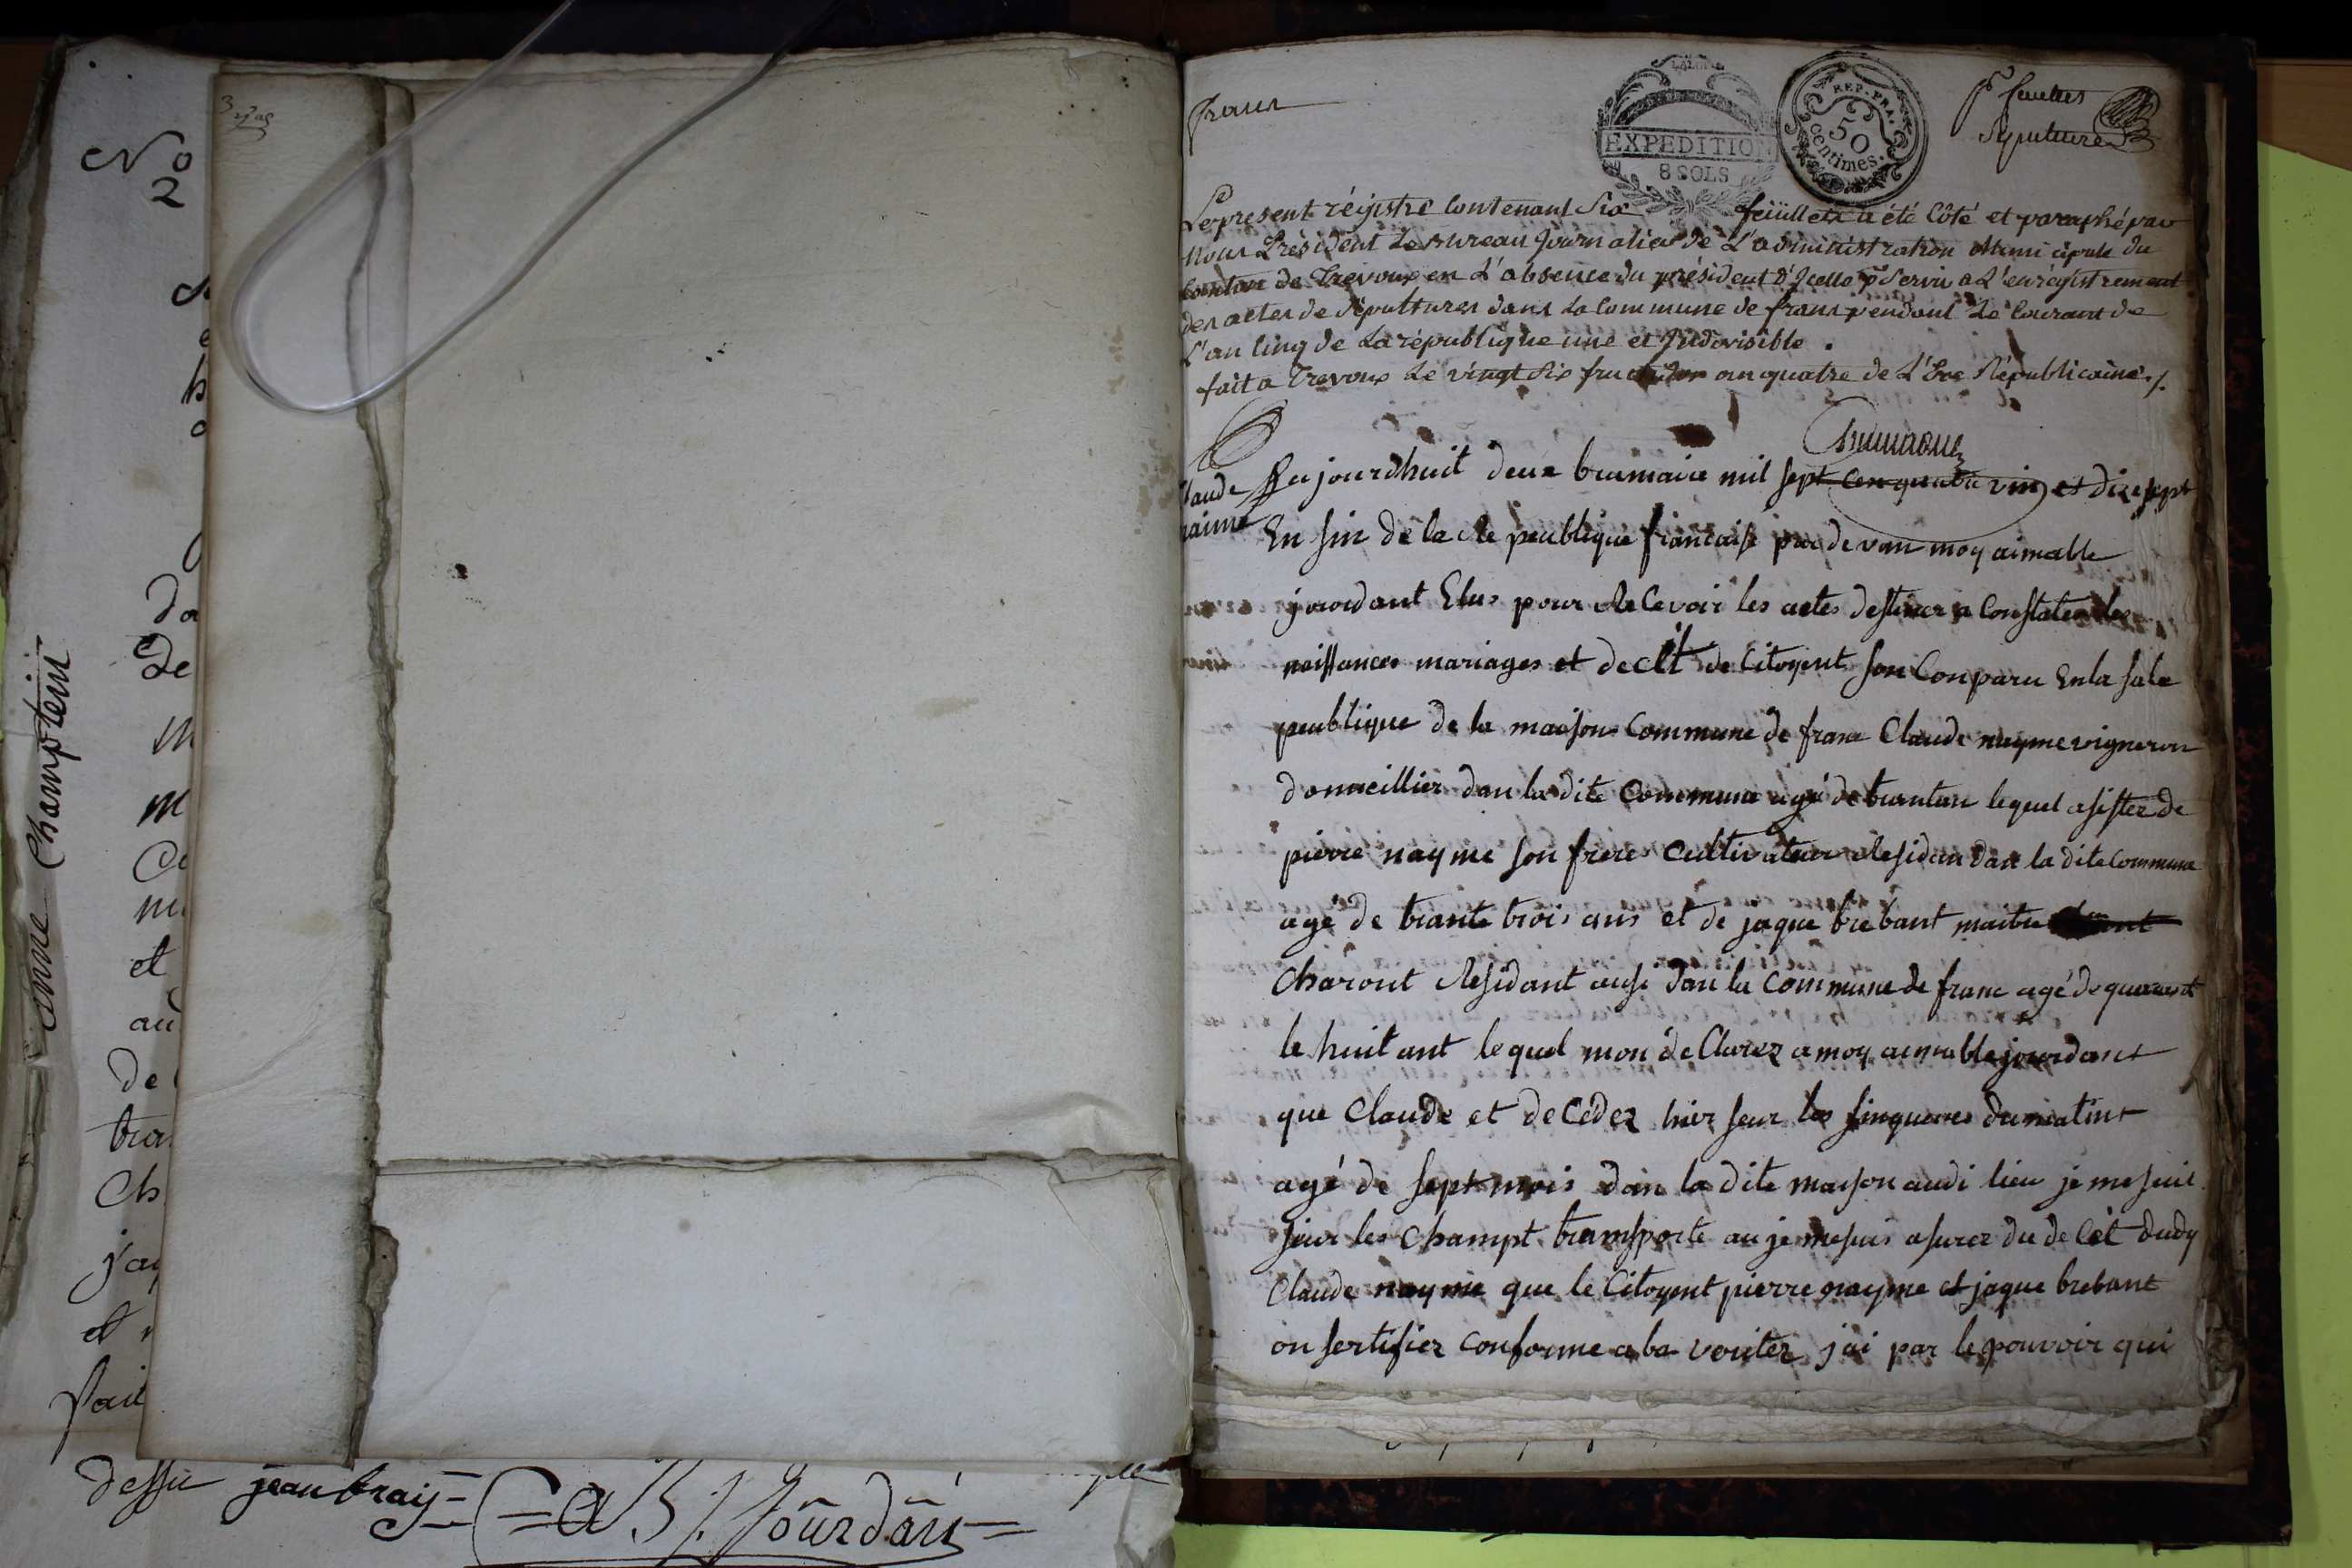 3
No
2
h
da
De
m
m
et
au
de
tra
Ch
j'ai
et
fait
dessu jean bray
= a B J. Jourdan =
anne Champtein
frans
LA LOI
EXPEDITION
8 SOLS
REP. FRA.
50
centimes.
pr. feuillet
Sepulture
Le présent régistre Contenant Six feüillets a été Côté et paraphé par
Nous Président Le Bureau Journalier de L'administration Municipale du
Canton de Trevoux en L'absence du président d'Icelle pr Servir a L'enrégistrement
des actes de sépultures dans La Commune de frans pendant Le Courant de
L'an Cinq de La république une et Indivisible.
fait a Trevoux Le vingt six fructidor an quatre de L'Ere Républicaine./.
Claude
naime
Au jourdhuit deux brumaire mil sept cen quatre vin et dix sept
En sin de la Re peublique francaise par de van moy aimable
jourdant Elus pour Re Cevoir les actes destiner a Constater les
naissances mariages et decet de Citoyent son Conparu En la sale
peublique de la maison Commune de franc Claude nayme vigneron
domicillier dan la dite Commune agé de trantan lequel asister de
pierre nayme son frere Cultivateur Residan dan la dite Commune
agé de trante trois ans et de jaque brebant maitre
Charont Residant ausi dan la Commune de franc agé de quarant
le huit ant le quel mon de Clarez a moy aimable jourdant
que Claude et de Cedez hier seur les sinqueures du matint
agé de sept mois dan la dite maison audi lieu je me suis
seur les Champt transporte au je me suis asurez du de Cet dudy
Claude nayme que le Citoyent pierre nayme et jaque brebant
on sertifier conforme a la veriter j'ai par le pouvoir qui